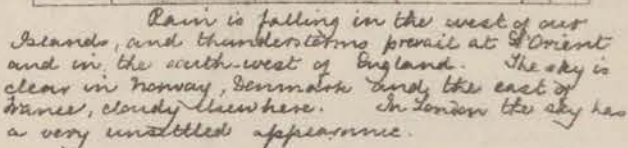 Rain is falling in the west of our
Islands, and thunderstorms prevail at L'Orient
and in the south-west of England. The sky is
clear in Norway, Denmark and the east of
France, cloudy elsewhere. In London the sky has
a very unsettled appearance.